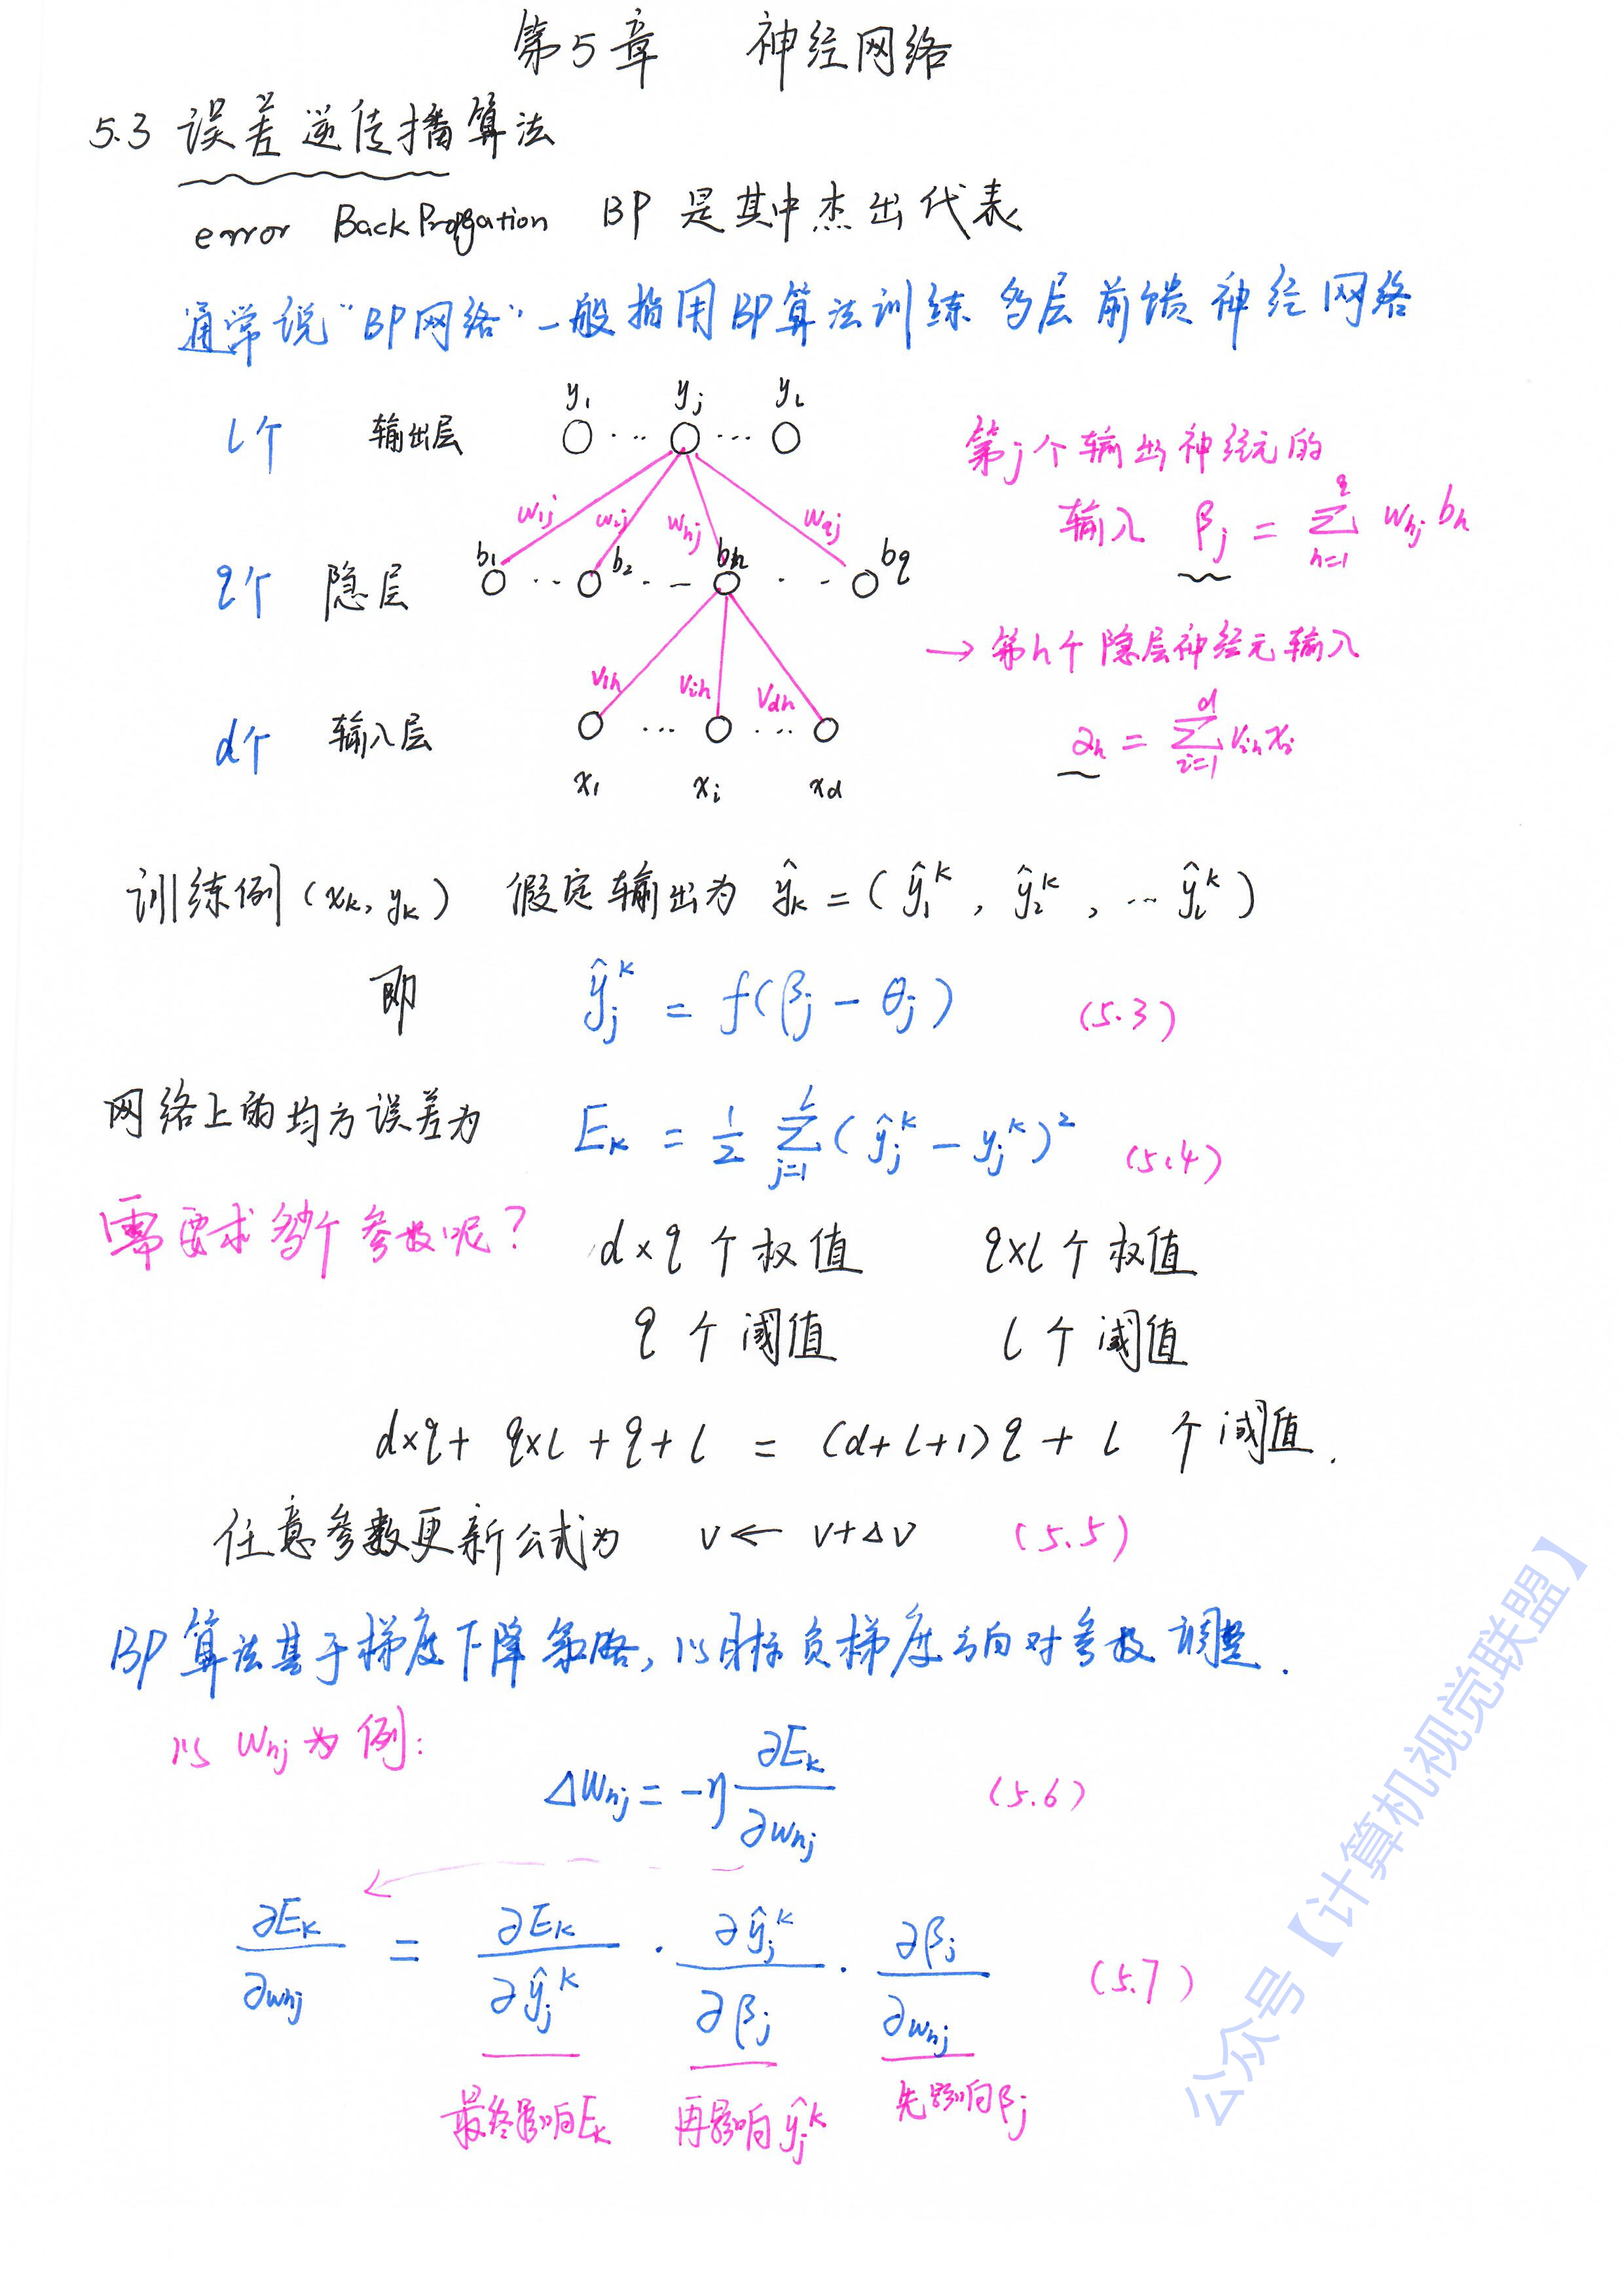 第5章 神经网络
5.3 误差逆传播算法
error BackPropgation BP 是其中杰出代表
通常说"BP网络"一般指用BP算法训练多层前馈神经网络
y₁ yⱼ yₗ
l个 输出层 ··· ···
第j个输出神经元的
w₁ⱼ w₂ⱼ wₕⱼ w_qj
输入 βⱼ = Σ_{h=1}^{q} wₕⱼ bₕ
b₁ b₂ bₕ b_q
q个 隐层
→ 第h个隐层神经元输入
v₁ₕ vᵢₕ v_dh
d个 输入层 ··· ···
αₕ = Σ_{i=1}^{d} vᵢₕ xᵢ
x₁ xᵢ x_d
训练例(xₖ, yₖ) 假定输出为 ŷₖ = (ŷ₁ᵏ, ŷ₂ᵏ, … ŷₗᵏ)
即 ŷⱼᵏ = f(βⱼ − θⱼ) (5.3)
网络上的均方误差为 Eₖ = 1/2 Σ_{j=1}^{l} (ŷⱼᵏ − yⱼᵏ)² (5.4)
需要求多少个参数呢? d×q 个权值 q×l 个权值
q 个阈值 l 个阈值
d×q + q×l + q + l = (d+l+1)q + l 个阈值.
任意参数更新公式为 v ← v+Δv (5.5)
BP算法基于梯度下降策略,以目标负梯度方向对参数调整.
以 wₕⱼ 为例:
Δwₕⱼ = −η ∂Eₖ/∂wₕⱼ (5.6)
∂Eₖ/∂wₕⱼ = ∂Eₖ/∂ŷⱼᵏ · ∂ŷⱼᵏ/∂βⱼ · ∂βⱼ/∂wₕⱼ (5.7)
最终影响Eₖ 再影响ŷⱼᵏ 先影响βⱼ
公众号【计算机视觉联盟】